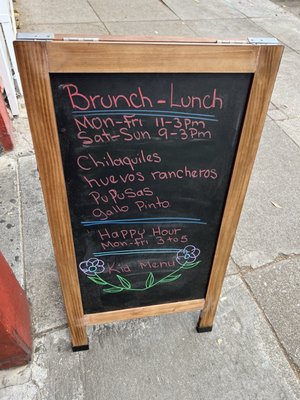 Brunch-Lunch
Mon-Fri 11-3pm
Sat-Sun 9-3pm
Chilaquiles
huevos rancheros
PuPusas
gallo Pinto
Happy Hour
Mon-Fri 3 to 5
Kid Menu